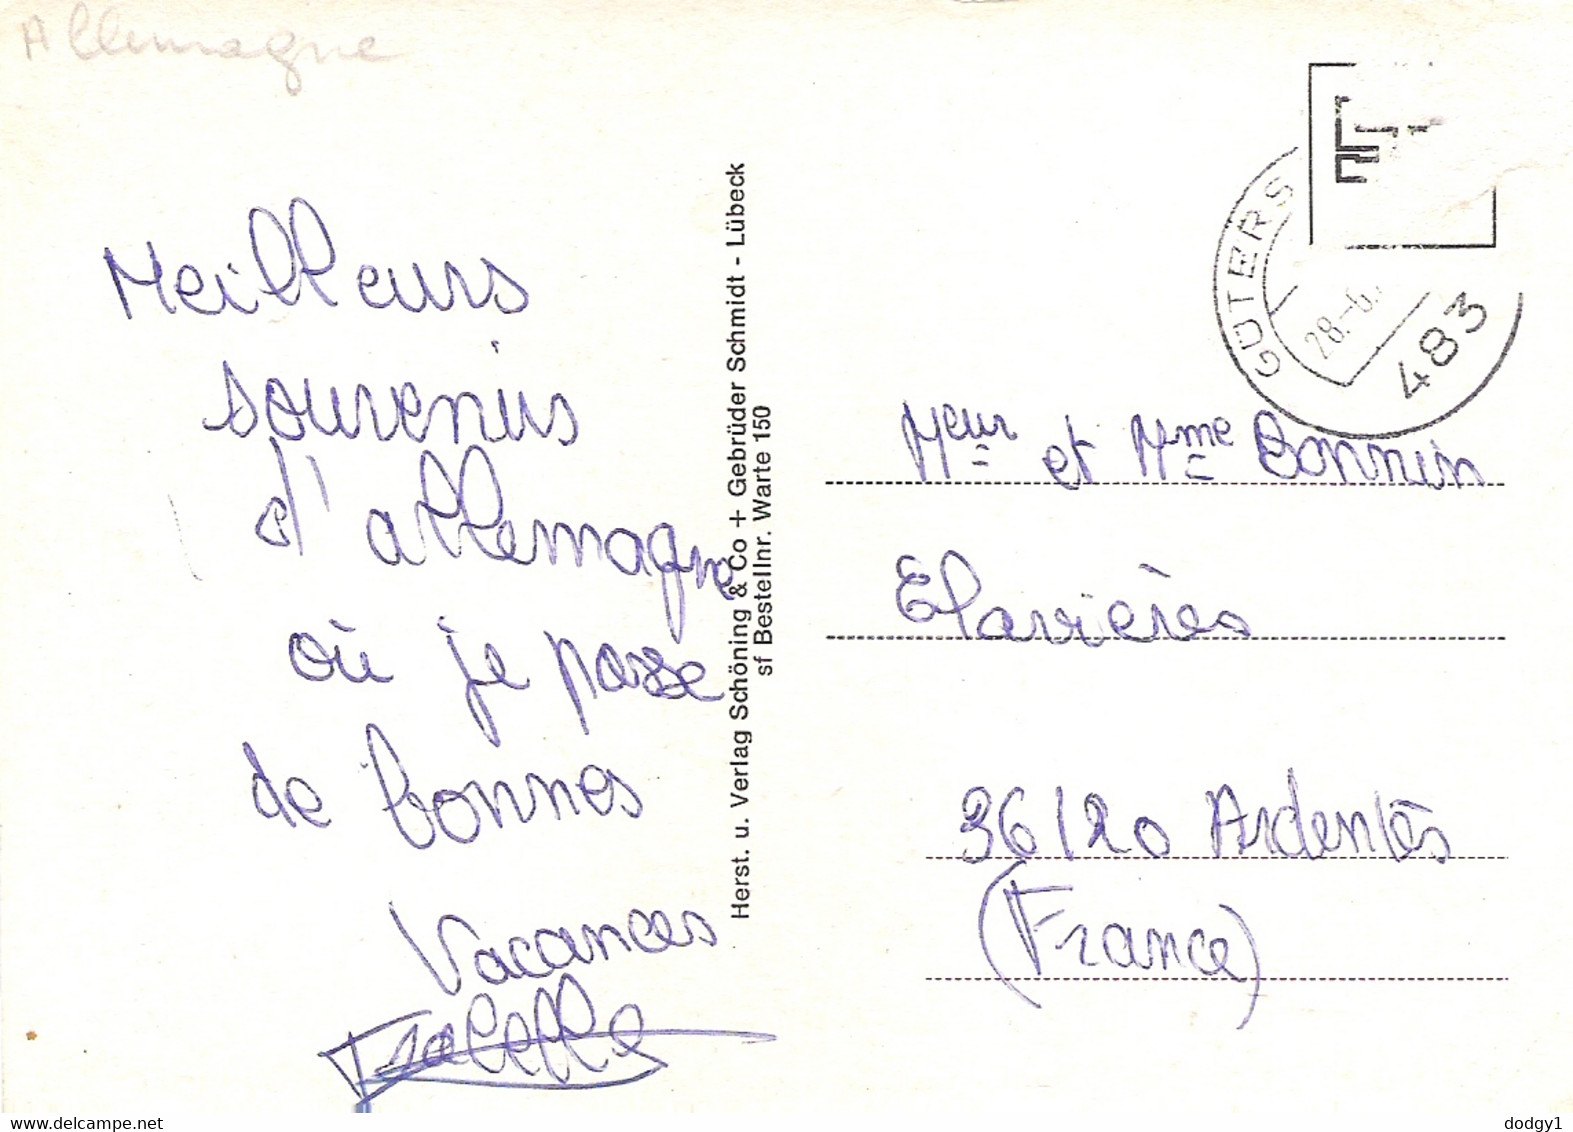 Allemagne
Meilleurs
souvenirs
d'allemagne
où je passe
de bonnes
Vacances
Isabelle
Herst. u. Verlag Schöning & Co + Gebrüder Schmidt - Lübeck
sf Bestellnr. Warte 150
GÜTERS
28.-6.
483
Meur et Mme Bonnin
Clavières
36120 Ardentes
(France)
www.delcampe.net
dodgy1